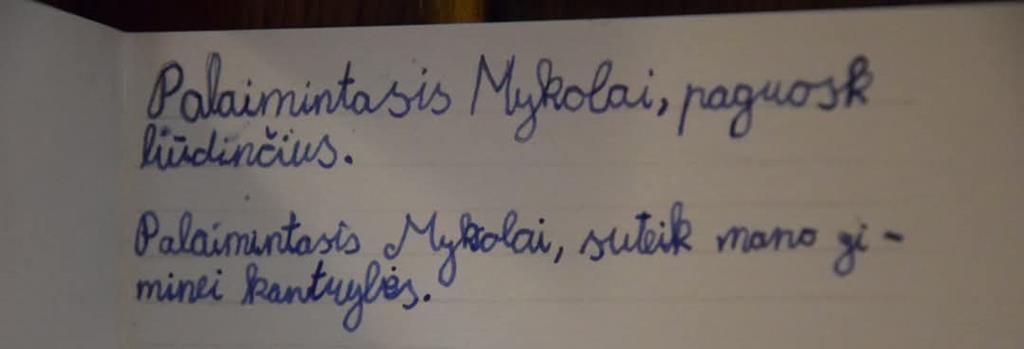 Palaimintasis Mykolai, paguosk
liūdinčius.
Palaimintasis Mykolai, suteik mano gi-
minei kantrybės.